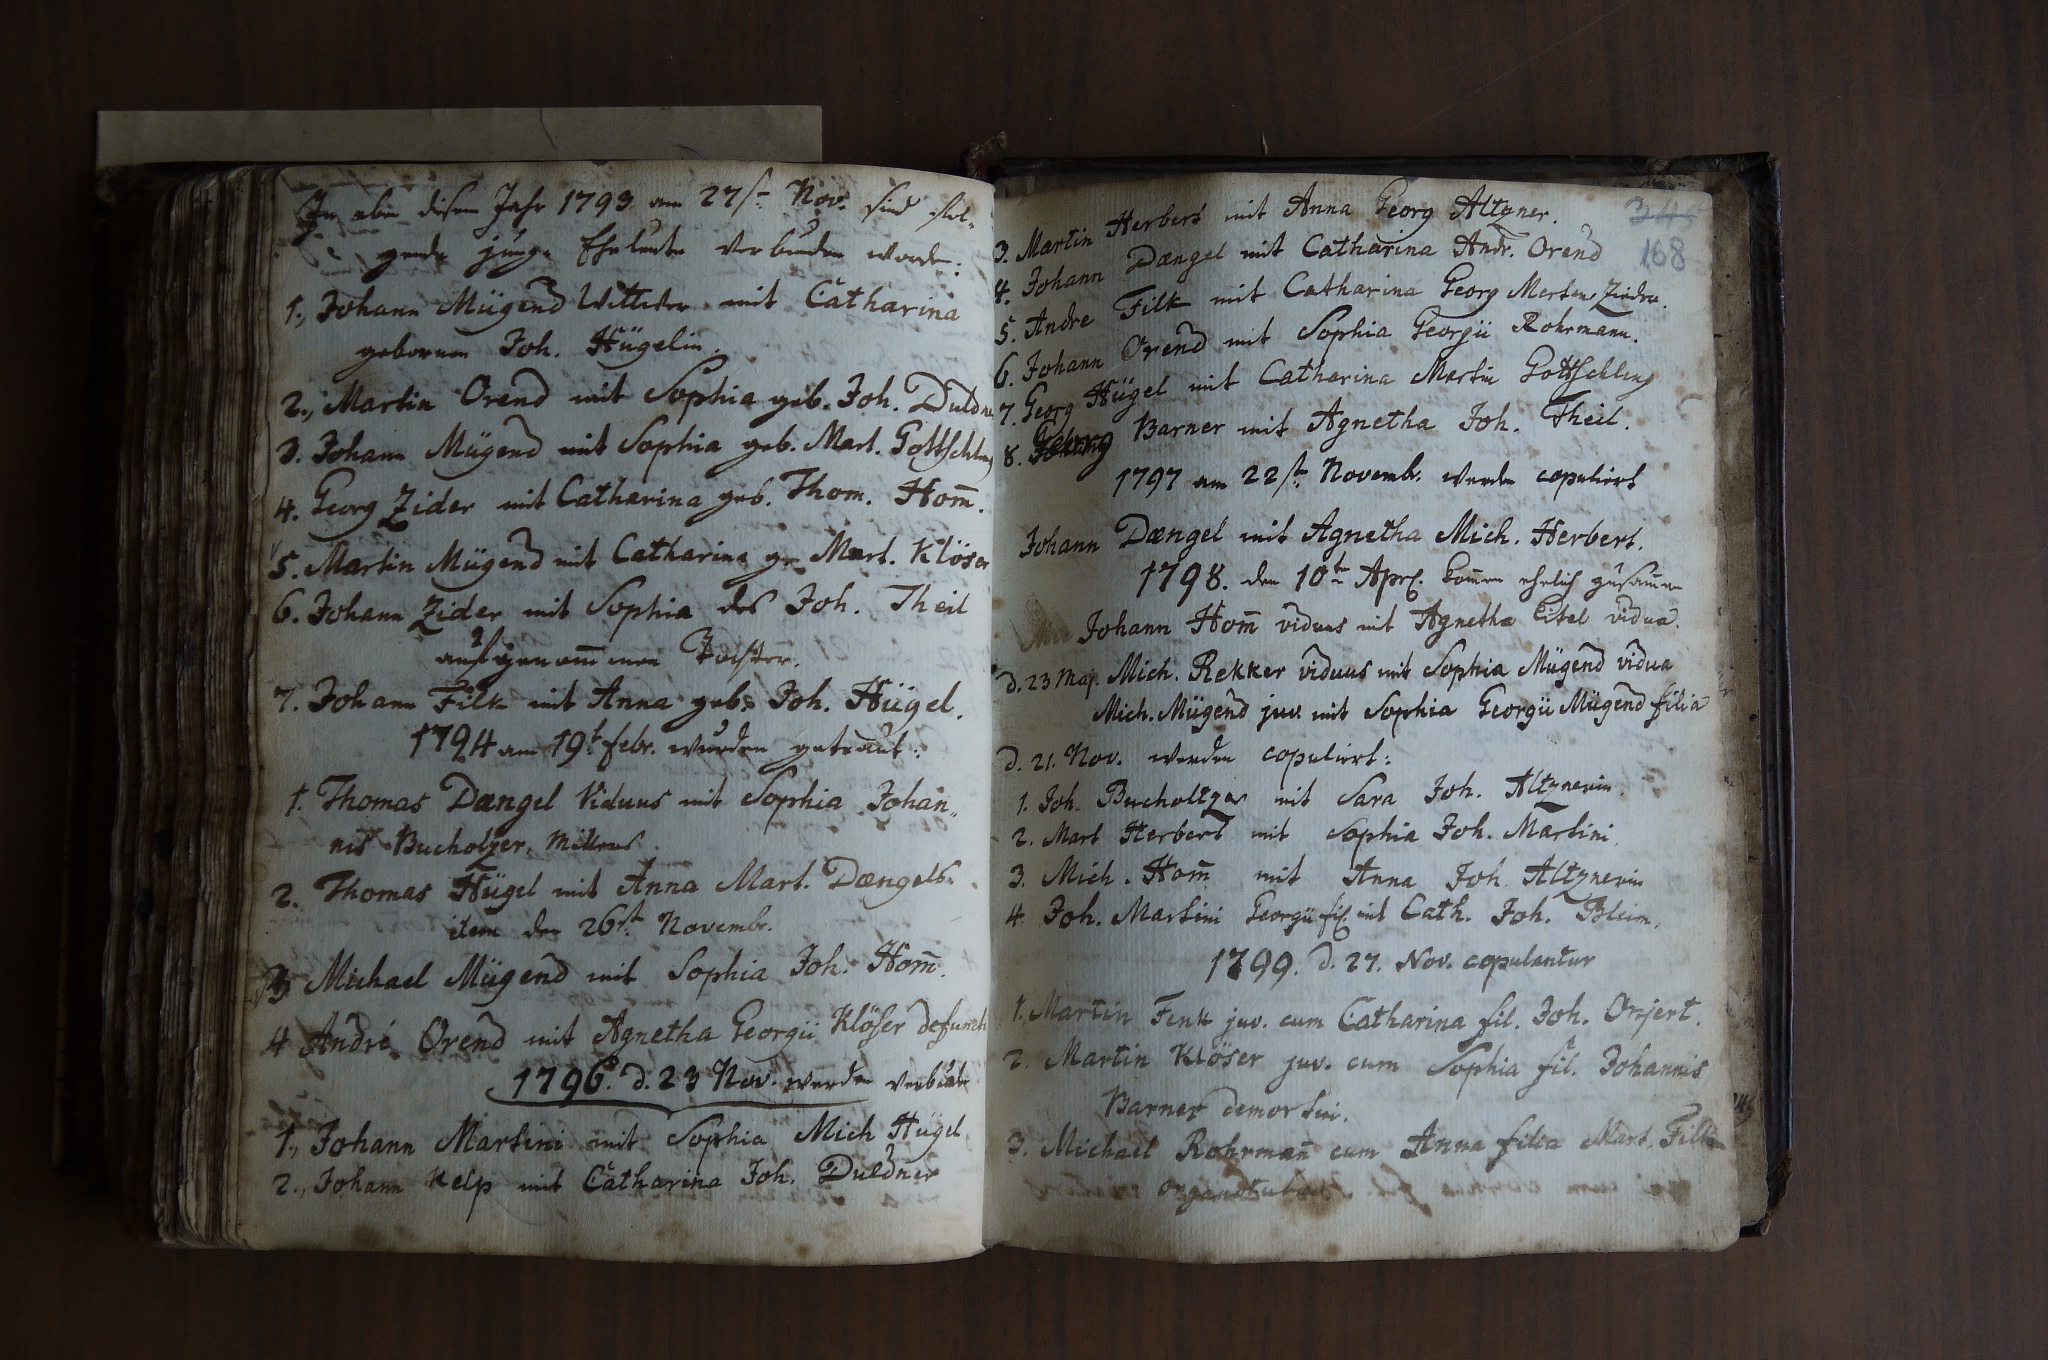 In eben disem Jahr 1793 am 27st Nov. sind fol-
gende junge Eheleute verbunden worden:
1., Johann Mügend Wittwer mit Catharina
gebornen Joh. Hügelin.
2., Martin Orend mit Sophia geb. Joh. Duldner
3. Johann Mügend mit Sophia geb. Mart. Gottschling
4. Georg Zider mit Catharina geb. Thom. Hom̄.
5. Martin Mügend mit Catharina ge. Mart. Klöser
6. Johann Zider mit Sophia des Joh. Theil
aufgenommen Tochter.
7. Johann Filk mit Anna geb. Joh. Hügel.
1794 am 19t febr. wurden getraut:
1. Thomas Dængel Viduus mit Sophia Johan-
nis Bucholzer,
2. Thomas Hügel mit Anna Mart. Dængels.
item den 26st Novembr.
3 Michael Mügend mit Sophia Joh. Hom̄.
4 André Orend mit Agnetha Georgii Klöser defuncti
1796. d. 23 Nov. werden
1., Johann Martini mit Sophia Mich Hügel
2., Johann Kelp mit Catharina Joh. Duldner
345
168
3. Martin Herbert mit Anna Georg Altzner.
4. Johann Dængel mit Catharina Andr. Orend
5. Andre Filk mit Catharina Georg Merten
6. Johann Orend mit Sophia Georgii Rohrmann.
7. Georg Hügel mit Catharina Martin Gottschling
8. Barner mit Agnetha Joh. Theil.
1797 am 22st Novembr. werden copuliert
Johann Dængel mit Agnetha Mich. Herbert.
1798. den 10tn Apr. kom̄en ehelich zusam̄en
Johann Hom̄ viduus mit Agnetha Eitel vidua.
d. 23 Maj. Mich. Rekker viduus mit Sophia Mügend vidua
Mich. Mügend juv. mit Sophia Georgii Mügend filia
d. 21. Nov. werden copuliert:
1. Joh. Bucholtzer mit Sara Joh. Altznerin
2. Mart Herbert mit Sophia Joh. Martini.
3. Mich. Hom̄ mit Anna Joh. Altznerin
4. Joh. Martini Georgii fil. mit Cath. Joh. Bleim.
1799. d. 27. Nov. copulantur
1., Martin Fenk juv. cum Catharina fil. Joh. Orjert.
2. Martin Klöser juv. cum Sophia fil. Johannis
Barner demortui.
3. Michael Rohrman̄ cum Anna filia Mart. Filk